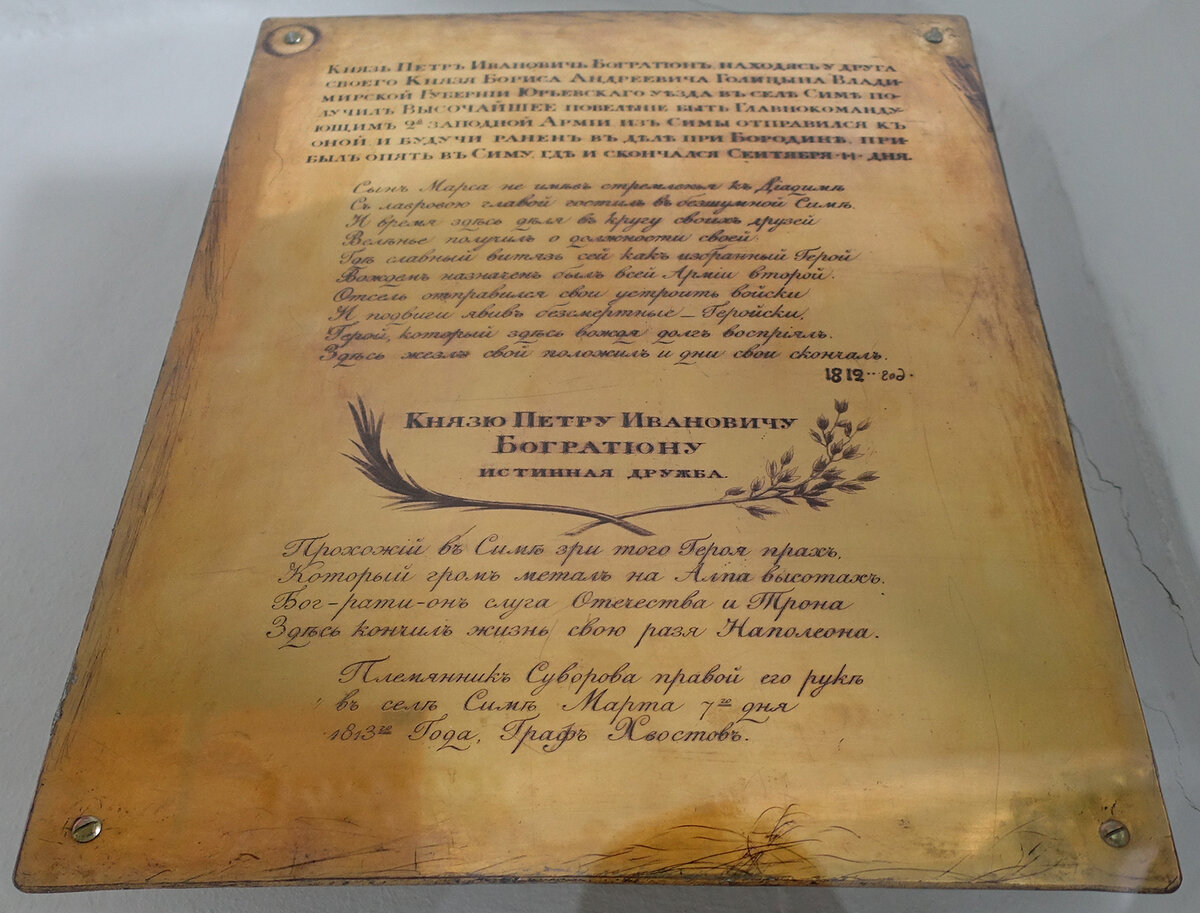 Князь Петръ Ивановичь Богратіонъ, находясь у друга
своего Князя Бориса Андреевича Голицына Влади-
мирской Губерніи Юрьевскаго уѣзда въ селѣ Симѣ по-
лучилъ ВЫСОЧАЙШЕЕ повелѣніе быть Главнокоманду-
ющимъ 2й Заподной Арміи изъ Симы отправился къ
оной, и будучи раненъ въ дѣлѣ при Бородинѣ, при-
былъ опять въ Симу, где и скончался Сентября дня.
Сынъ Марса не имѣвъ стремленья къ
Съ лавровою главой гостилъ въ безшумной Симѣ.
И время здѣсь дѣля въ кругу своихъ друзей
Велѣнье получилъ о должности своей.
Гдѣ славный витязь сей какъ избранный Герой
Вождемъ назначенъ былъ всей Арміи второй.
Отсель отправился свои устроить войски
И подвиги явивъ безсмертные – Геройски,
Герой, который здѣсь вождя долгъ воспріялъ.
Здѣсь жезлъ свой положилъ и дни свои скончалъ.
1812 год.
Князю Петру Ивановичу
Богратіону
истинная дружба.
Прохожій въ Симѣ зри того Героя прахъ,
Который громъ металъ на Алпа высотахъ.
Бог-рати-онъ слуга Отечества и Трона
Здѣсь кончилъ жизнь свою разя Наполеона.
Племянникъ Суворова правой его рукѣ
въ селѣ Симѣ Марта 7го дня
1813го Года, Графъ Хвостовъ.